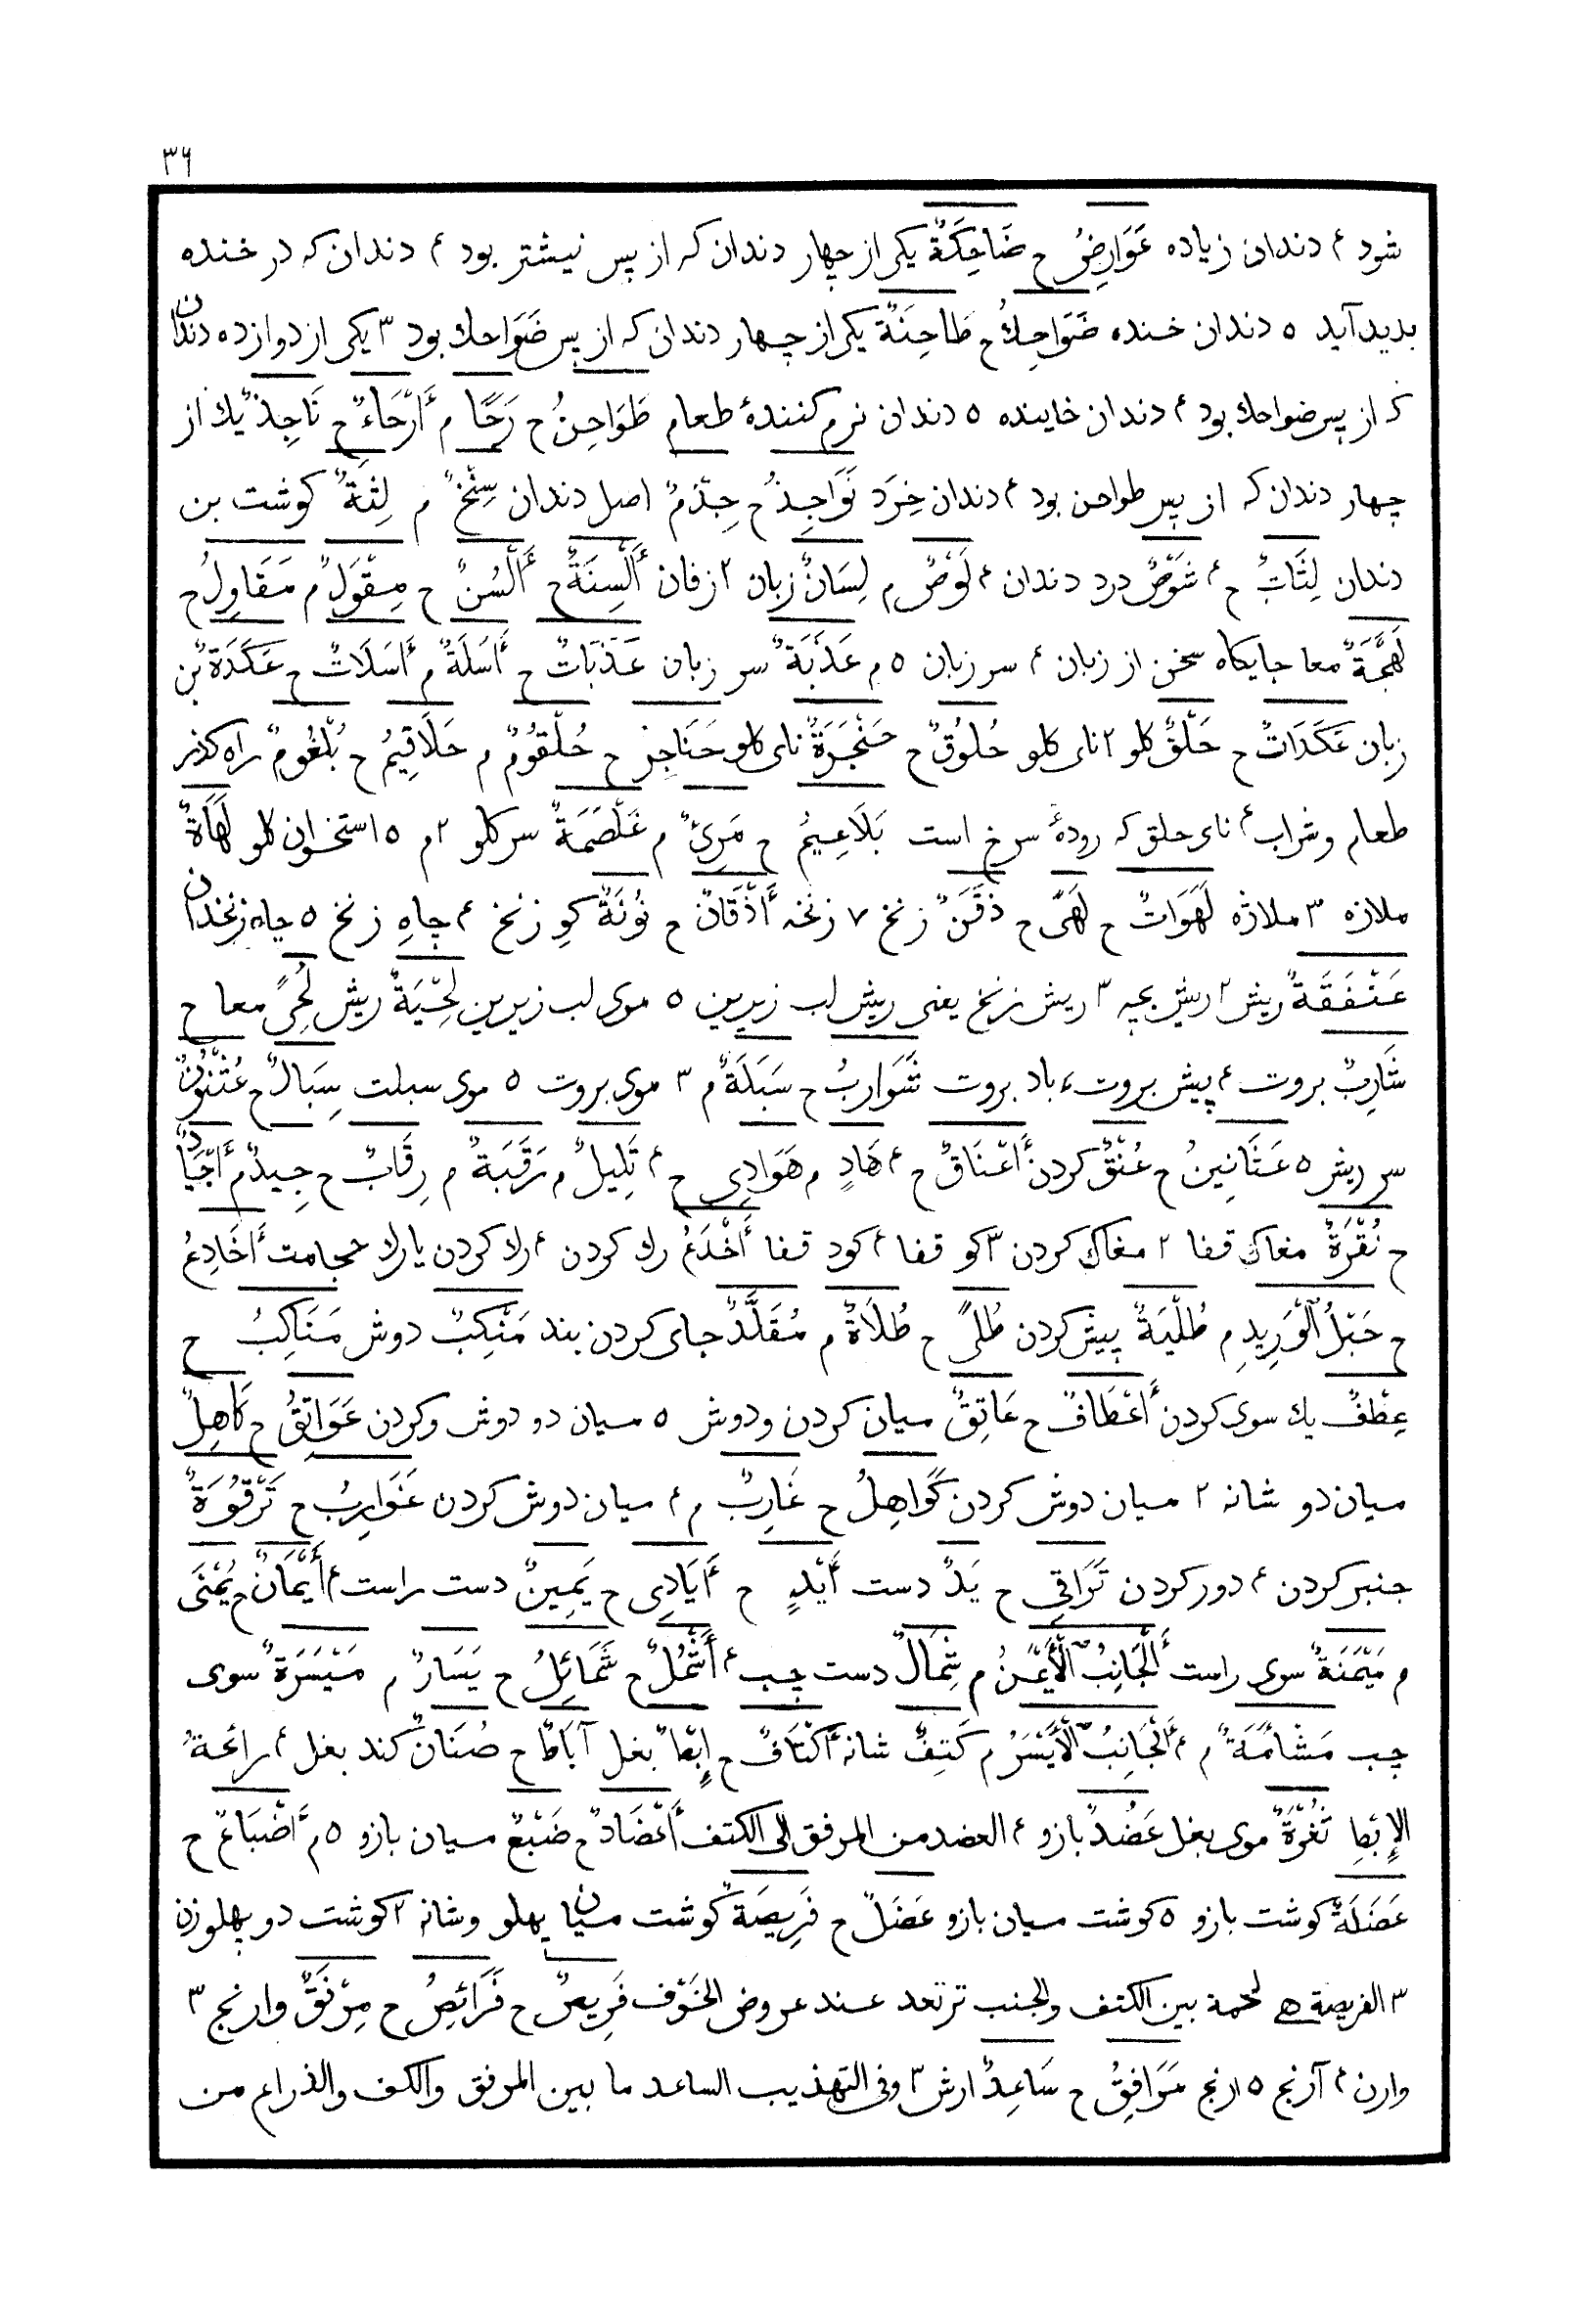 ٣٦
شود ۴ دندان زیاده عَوَارِضُ ح ضَاحِكَةٌ یکی از چهار دندان که از پس نیشتر بود ۴ دندان که در خنده
بدید آید ٥ دندان خنده ضَوَاحِكُ ح طَاحِنَةٌ یکی از چهار دندان که از پس ضَوَاحك بود ٣ یکی از دوازده دندان
که از پس ضواحك بود ۴ دندان خاینده ٥ دندان نرم کنندهٔ طعام طَوَاحِنُ ح رَحًا م أَرْحَاءٌ ح نَاجِذٌ یك از
چهار دندان که از پس طواحن بود ۴ دندان خِرَد نَوَاجِذُ ح جِذْمٌ اصل دندان سِنْخٌ م لِثَةٌ کوشت بن
دندان لِثَاتٌ ح ۴ شَوْصٌ درد دندان ۴ لَوْصٌ م لِسَانٌ زبان ٢ زفان أَلْسِنَةٌ ح أَلْسُنٌ ح مِقْوَلٌ م مَقَاوِلُ ح
لَهْجَةٌ معا جایکاه سخن از زبان ۴ سر زبان ٥ م عَذَبَةٌ سر زبان عَذَبَاتٌ ح أَسَلَةٌ م أَسَلَاتٌ ح عَكَدَةٌ بن
زبان عَكَدَاتٌ ح حَلْقٌ کلو ٢ نای کلو حُلُوقٌ ح حَنْجَرَةٌ نای کلو حَنَاجِرُ ح حُلْقُومٌ م حَلَاقِيمُ ح بُلْعُومٌ راه کذر
طعام و شراب ۴ نای حلق که رودهٔ سرخ است بَلَاعِيمُ ح مَرِئٌ م غَلْصَمَةٌ سر کلو ٢ م ٥ استخوان کلو لَهَاةٌ
ملازه ٣ ملاژه لَهَوَاتٌ ح لَهًى ح ذَقَنٌ زنخ ٧ زنخه أَذْقَانٌ ح نُونَةٌ کوِ زنخ ۴ چاهِ زنخ ٥ چاه زنخدان
عَنْفَقَةٌ ریش ٢ ریش بچه ٣ ریش زنخ یعنی ریش لب زیرین ٥ موی لب زیرین لِحْيَةٌ ریش لُحًى معا ح
شَارِبٌ بروت ۴ پیش بروت ۴ باد بروت شَوَارِبُ ح سَبَلَةٌ م ٣ موی بروت ٥ موی سبلت سِبَالٌ ح عُثْنُونٌ
سر ریش ٥ عَثَانِينُ ح عُنْقٌ کردن أَعْنَاقٌ ح ۴ هَادٍ م هَوَادِی ح ۴ تَلِيلٌ م رَقَبَةٌ م رِقَابٌ ح جِيدٌ م أَجْيَادٌ
ح نُقْرَةٌ مغاك قفا ٢ مغاك کردن ٣ کو قفا ۴ کود قفا أَخْدَعُ رك کردن ۴ رك کردن یا رك حجامت أَخَادِعُ
ح حَبْلُ الْوَرِيدِ م طُلْيَةٌ پیش کردن طُلًى ح طُلَاةٌ م مُقَلَّدٌ جای کردن بند مَنْكِبٌ دوش مَنَاكِبُ ح
عِطْفٌ یك سوی کردن أَعْطَافٌ ح عَاتِقٌ میان کردن و دوش ٥ میان دو دوش و کردن عَوَاتِقُ ح كَاهِلٌ
میان دو شانه ٢ میان دوش کردن كَوَاهِلُ ح غَارِبٌ م ۴ میان دوش کردن غَوَارِبُ ح تَرْقُوَةٌ
چنبر کردن ۴ دور کردن تَرَاقِی ح يَدٌ دست أَيْدٍ ح أَيَادِی ح يَمِينٌ دست راست ۴ أَيْمَانٌ ح يُمْنَى
م مَيْمَنَةٌ سوی راست أَلْجَانِبُ الْأَيْمَنُ م شِمَالٌ دست چب ۴ أَشْمُلٌ ح شَمَائِلُ ح يَسَارٌ م مَيْسَرَةٌ سوی
چب مَشْأَمَةٌ م ۴ أَلْجَانِبُ الْأَيْسَرُ م كَتِفٌ شانه أَكْتَافٌ ح إِبْطٌ بغل آبَاطٌ ح صُنَانٌ کند بغل ۴ رائحةُ
الإِبْطِ ثُغْرَةٌ موی بغل عَضُدٌ بازو ۴ العضد من المرفق الی الکتف أَعْضَادٌ ح ضَبْعٌ میان بازو ٥ م أَضْبَاعٌ ح
عَضَلَةٌ کوشت بازو ٥ کوشت میان بازو عَضَلٌ ح فَرِيصَةٌ کوشت میان پهلو و شانه ٢ کوشت دو پهلو زن
٣ الفریصة هی لحمة بین الکتف والجنب ترتعد عند عروض الخَوْف فَرِيصٌ ح فَرَائِصُ ح مِرْفَقٌ وارنج ٣
وارن ۴ آرنج ٥ ارنج مَرَافِقُ ح سَاعِدٌ ارش ٣ وفی التهذیب الساعد ما بین المرفق والکف والذراع من